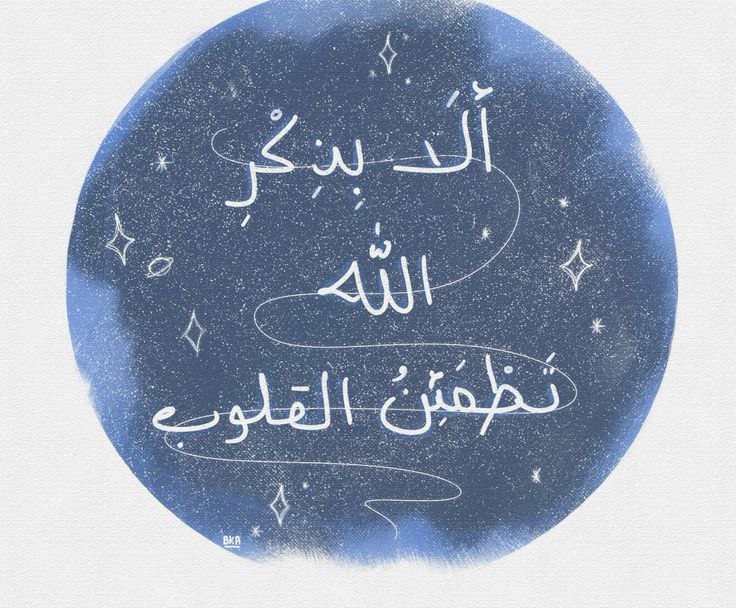 أَلَا بِذِكْرِ
اللّٰه
تَطْمَئِنُ القلوب
BKA